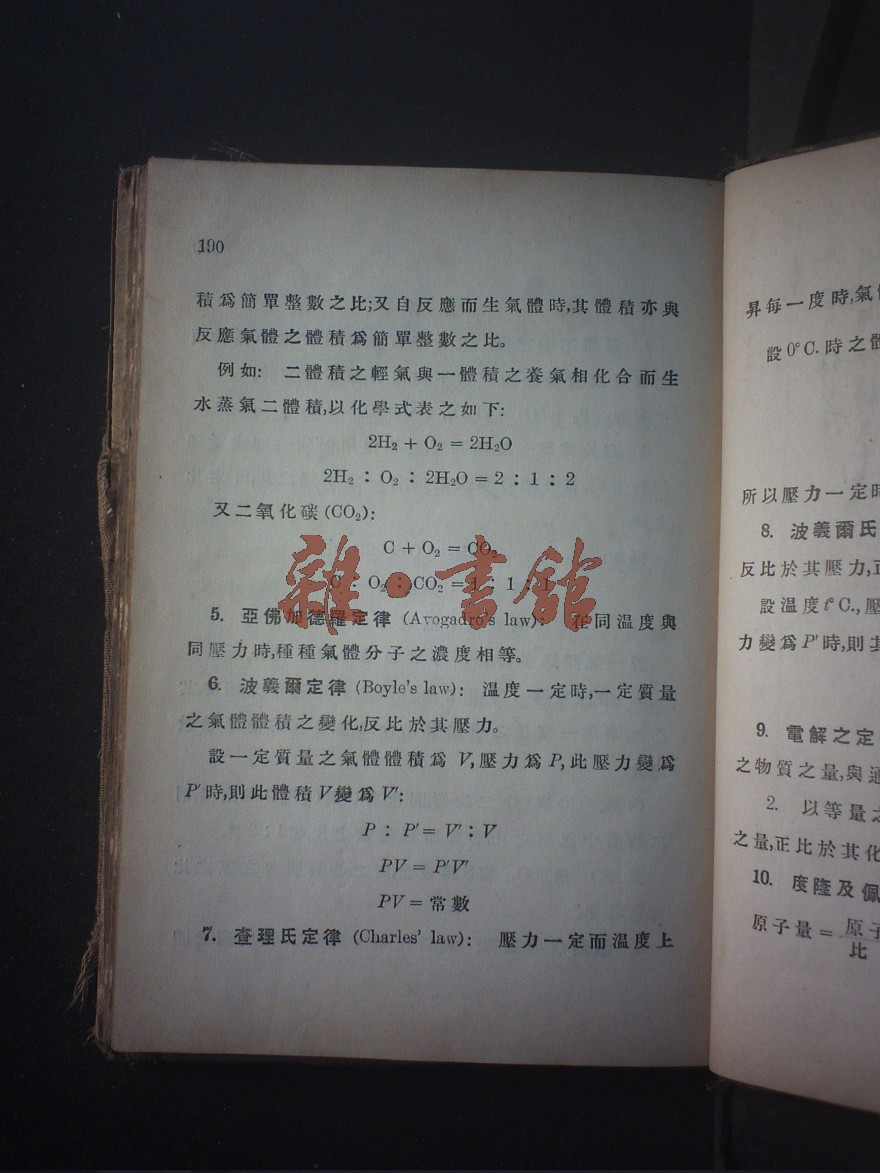 190
積爲簡單整數之比;又自反應而生氣體時,其體積亦與
反應氣體之體積爲簡單整數之比。
例如: 二體積之輕氣與一體積之養氣相化合而生
水蒸氣二體積,以化學式表之如下:
2H₂ + O₂ = 2H₂O
2H₂ : O₂ : 2H₂O = 2 : 1 : 2
又二氧化碳 (CO₂):
C + O₂ = CO₂
C : O₂ : CO₂ = 1 : 1 : 1
雜·書館
5. 亞佛加德羅定律 (Avogadro's law): 在同温度與
同壓力時,種種氣體分子之濃度相等。
6. 波義爾定律 (Boyle's law): 温度一定時,一定質量
之氣體體積之變化,反比於其壓力。
設一定質量之氣體體積爲 V,壓力爲 P,此壓力變爲
P′時,則此體積V變爲V′:
P : P′ = V′ : V
PV = P′V′
PV = 常數
7. 查理氏定律 (Charles' law): 壓力一定而温度上
昇每一度時,氣
設0°C.時之體
所以壓力一定時
8. 波義爾氏
反比於其壓力,正
設温度t°C.,壓
力變爲P′時,則其
9. 電解之定
之物質之量,與通
2. 以等量之
之量,正比於其化
10. 度隆及佩
原子量 = 原子
比